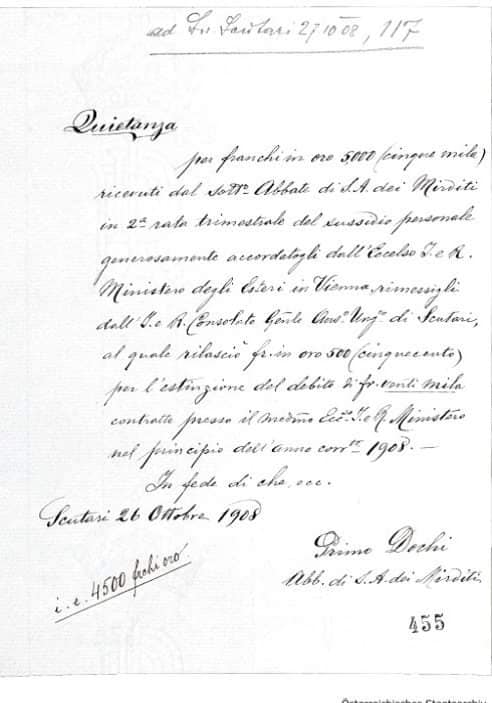 ad Nr. Scutari 27/10 08, 117
Quietanza
per franchi in oro 5,000 (cinque mila)
ricevuti dal sott.º Abbate di S. A. dei Mirditi
in 2ª rata trimestrale del sussidio personale
generosamente accordatogli dall'Eccelso I. e R.
Ministero degli Esteri in Vienna, rimessigli
dall'I. e R. Consolato Gen̄le Aus.º Ung.º di Scutari,
al quale rilasciò fr. in oro 500 (cinquecento)
per l'estinzione del debito di fr. venti mila
contratto presso il medmo Ecc.º I. e R. Ministero
nel principio dell'anno corr.te 1908. —
In fede di che, ecc.
Scutari 26 Ottobre 1908
Primo Dochi
Abb. di S. A. dei Mirditi
i. e. 4500 frchi oro.
455
Österreichisches Staatsarchiv